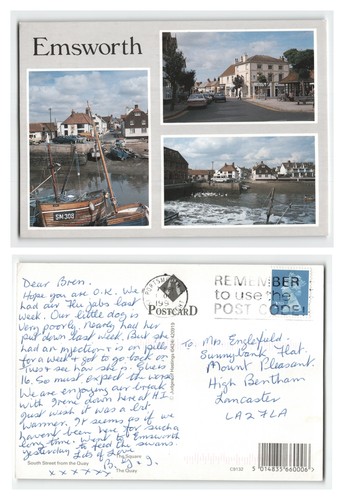 Emsworth
SM 308
Dear Bren.
Hope you are O.K. We
had our flu jabs last
week. Our little dog is
very poorly. Nearly had her
put down last week. But she
had an injection & is on pills
for a week & got to go back on
Tues & see how she is. She is
16. So must expect the worse
We are enjoying our break
with Irene down here at H.I.
Just wish it was a lot
warmer. It seems as if we
havent been here for such a
long time. Went to Emsworth
yesterday to feed the swans.
Lots of Love
B. x y.
x x x x x x
The Square
South Street from the Quay
The Quay
POSTCARD
© Judges of Hastings
PORTSMOUTH
199
REMEMBER
to use the
POST CODE
To: Mrs. Englefield.
Sunnybank Flat.
Mount Pleasant.
High Bentham
Lancaster
LA2 7LA
C9132
5 014835 660006